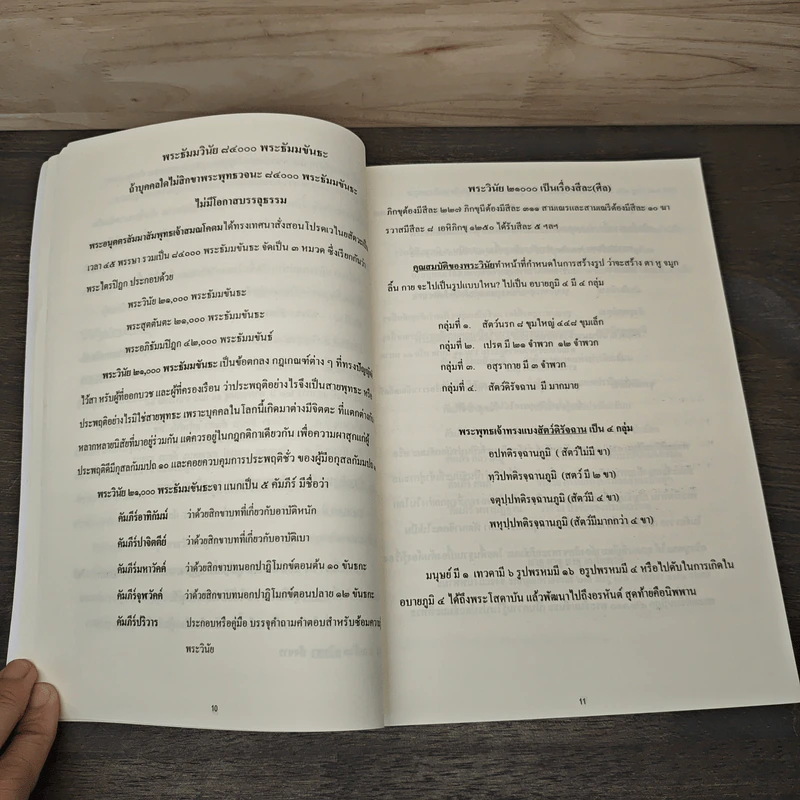 พระธัมมวินัย ๘๔๐๐๐ พระธัมมขันธะ
ถ้าบุคคลใดไม่สิกขาพระพุทธวจนะ ๘๔๐๐๐ พระธัมมขันธะ
ไม่มีโอกาสบรรลุธรรม
พระอนุตตรสัมมาสัมพุทธเจ้าสมณโคดม ได้ทรงเทศนาสั่งสอนโปรดเวไนยสัตว์
เวลา ๔๕ พรรษา รวมเป็น ๘๔๐๐๐ พระธัมมขันธะ จัดเป็น ๓ หมวด ซึ่งเรียกกันว่า
พระไตรปิฎก ประกอบด้วย
พระวินัย ๒๑,๐๐๐ พระธัมมขันธะ
พระสุตตันตะ ๒๑,๐๐๐ พระธัมมขันธะ
พระอภิธัมมปิฎก ๔๒,๐๐๐ พระธัมมขันธ์
พระวินัย ๒๑,๐๐๐ พระธัมมขันธะ เป็นข้อตกลง กฎเกณฑ์ต่าง ๆ ที่ทรงบัญญัติ
ไว้สา หรับผู้ที่ออกบวช และผู้ที่ครองเรือน ว่าประพฤติอย่างไรจึงเป็นสายพุทธะ หรือ
ประพฤติอย่างไรมิใช่สายพุทธะ เพราะบุคคลในโลกนี้เกิดมาต่างมีจิตตะ ที่แตกต่างกัน
หลากหลายนิสัยที่มาอยู่ร่วมกัน แต่ควรอยู่ในกฎกติกาเดียวกัน เพื่อความผาสุกแก่ผู้
ประพฤติดีมีกุสลกัมมปถ ๑๐ และคอยควบคุมการประพฤติชั่ว ของผู้มีอกุสลกัมมปถ
พระวินัย ๒๑,๐๐๐ พระธัมมขันธะจา แนกเป็น ๕ คัมภีร์ มีชื่อว่า
คัมภีร์อาทิกัมม์ ว่าด้วยสิกขาบทที่เกี่ยวกับอาบัติหนัก
คัมภีร์ปาจิตตีย์ ว่าด้วยสิกขาบทที่เกี่ยวกับอาบัติเบา
คัมภีร์มหาวัคค์ ว่าด้วยสิกขาบทนอกปาฏิโมกข์ตอนต้น ๑๐ ขันธกะ
คัมภีร์จุฬวัคค์ ว่าด้วยสิกขาบทนอกปาฏิโมกข์ตอนปลาย ๑๒ ขันธกะ
คัมภีร์ปริวาร ประกอบหรือคู่มือ บรรจุคำถามคำตอบสำหรับซ้อมความรู้
พระวินัย
10
พระวินัย ๒๑๐๐๐ เป็นเรื่องสีละ(ศีล)
ภิกขุต้องมีสีละ ๒๒๗ ภิกขุนีต้องมีสีละ ๓๑๑ สามเณรและสามเณรีต้องมีสีละ ๑๐ ฆา
รวาสมีสีละ ๘ เอหิภิกขุ ๑๒๕๐ ได้รับสีละ ๕ ฯลฯ
คุณสมบัติของพระวินัยทำหน้าที่กำหนดในการสร้างรูป ว่าจะสร้าง ตา หู จมูก
ลิ้น กาย จะไปเป็นรูปแบบไหน? ไปเป็น อบายภูมิ ๔ มี ๔ กลุ่ม
กลุ่มที่ ๑. สัตว์นรก ๘ ขุมใหญ่ ๔๔๘ ขุมเล็ก
กลุ่มที่ ๒. เปรต มี ๒๑ จำพวก ๑๒ จำพวก
กลุ่มที่ ๓. อสุรากาย มี ๓ จำพวก
กลุ่มที่ ๔. สัตว์ดิรัจฉาน มี มากมาย
พระพุทธเจ้าทรงแบ่งสัตว์ดิรัจฉาน เป็น ๔ กลุ่ม
อปทติรจฺฉานภูมิ ( สัตว์ไม่มี ขา)
ทฺวิปทติรจฺฉานภูมิ (สตว์ มี ๒ ขา)
จตุปฺปทติรจฺฉานภูมิ (สัตว์มี ๔ ขา)
พหุปฺปทติรจฺฉานภูมิ (สัตว์มีมากกว่า ๔ ขา)
มนุษย์ มี ๑ เทวดามี ๖ รูปพรหมมี ๑๖ อรูปพรหมมี ๔ หรือไปดับในการเกิดใน
อบายภูมิ ๔ ได้ถึงพระโสดาบัน แล้วพัฒนาไปถึงอรหันต์ สุดท้ายคือนิพพาน
11